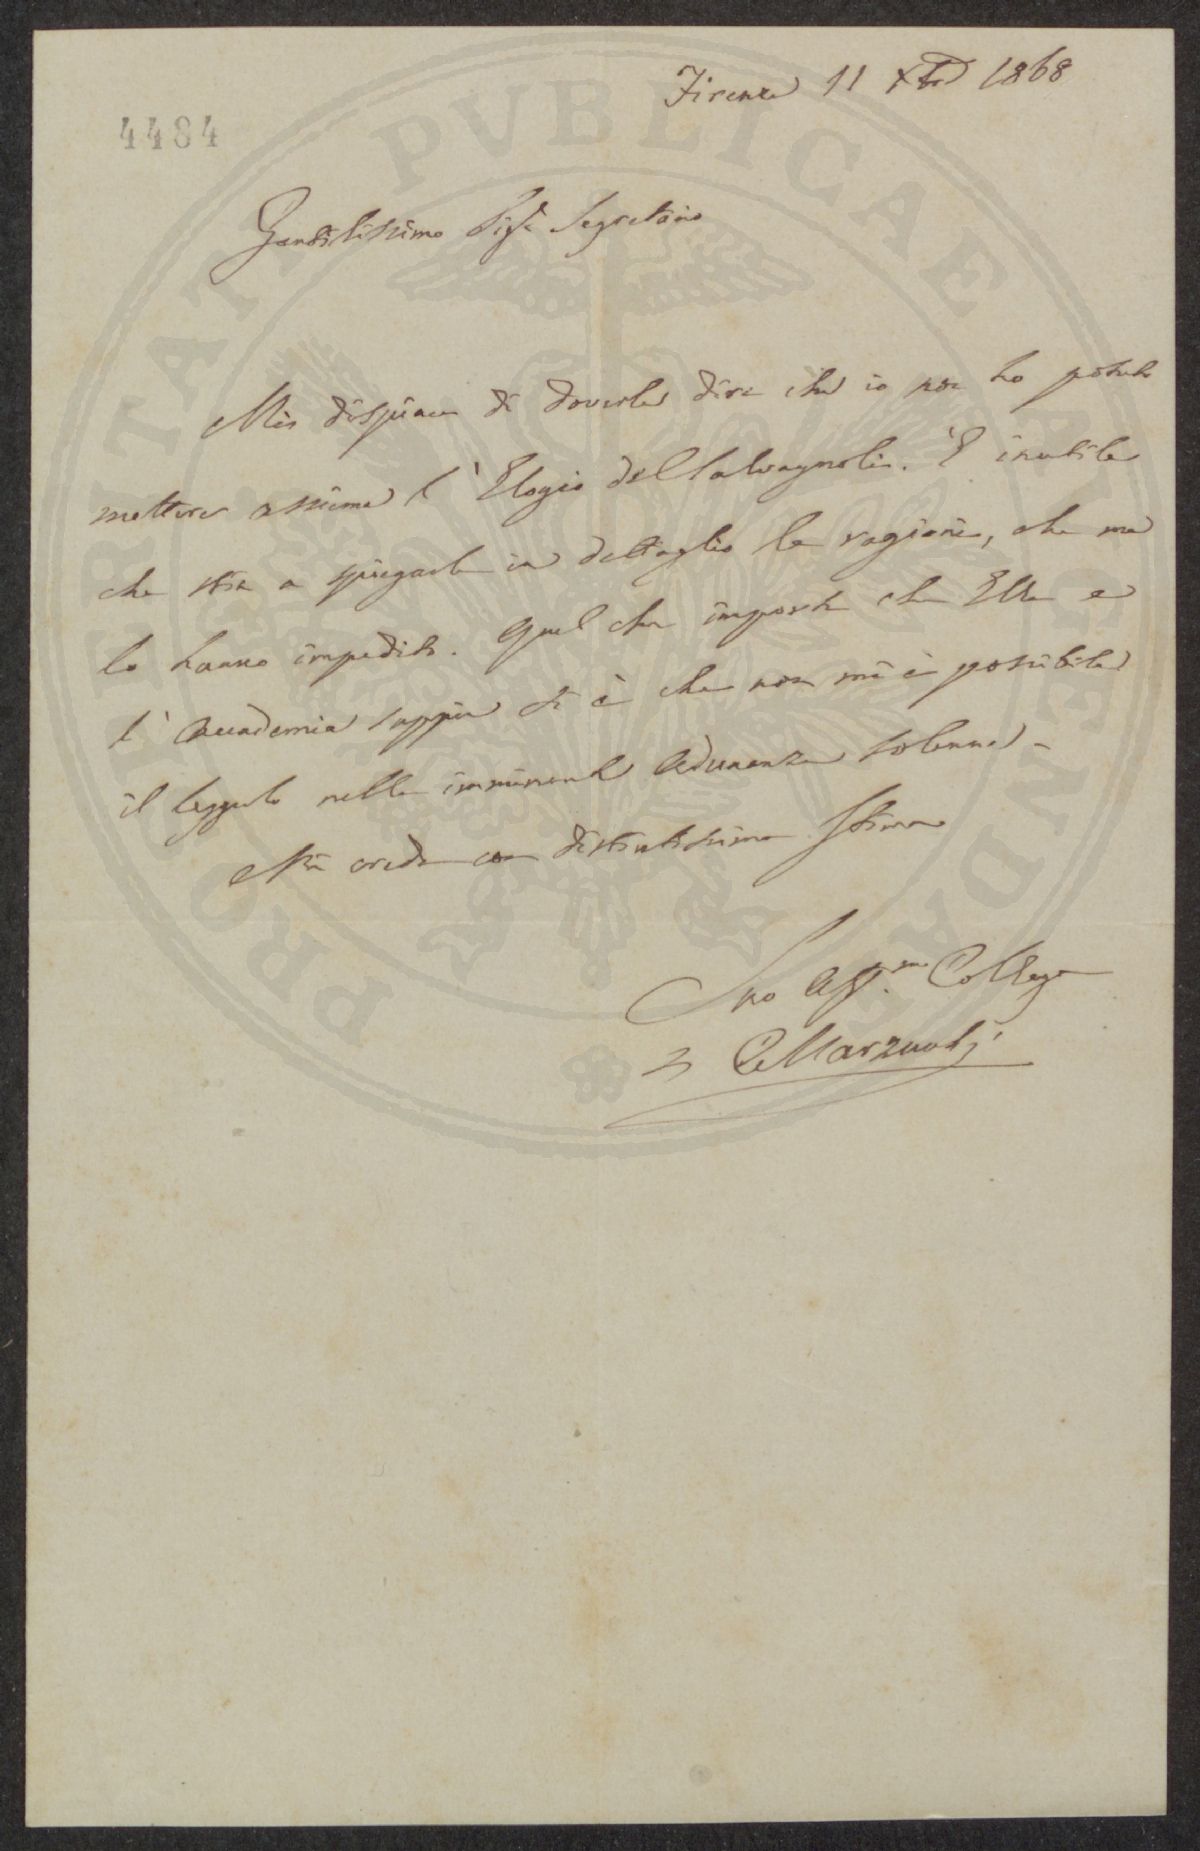 Firenze 11 Xbre 1868
4484
Gentilissimo Sigr Segretario
Mi dispiace di doverle dire che io non ho potuto
mettere assieme l'Elogio del Salvagnoli. È inutile
che stia a spiegarle in dettaglio le ragioni, che me
lo hanno impedito. Quel che importa che Ella e
l'Accademia sappia si è che non mi è possibile
il leggerlo nella imminente Adunanza solenne.
Mi creda con distintissima stima
Suo Affmo Collega
C Marzuoli
PROSPERITATI PVBLICAE AVGENDAE